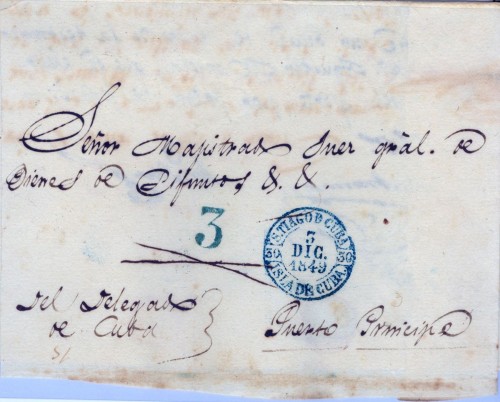 Señor Magistrado Juez gral. de
Bienes de Difuntos &. &.
3
S.TIAGO D CUBA
3
DIC.
1849
ISLA DE CUBA.
Del Delegado
de Cuba
Puerto Principe